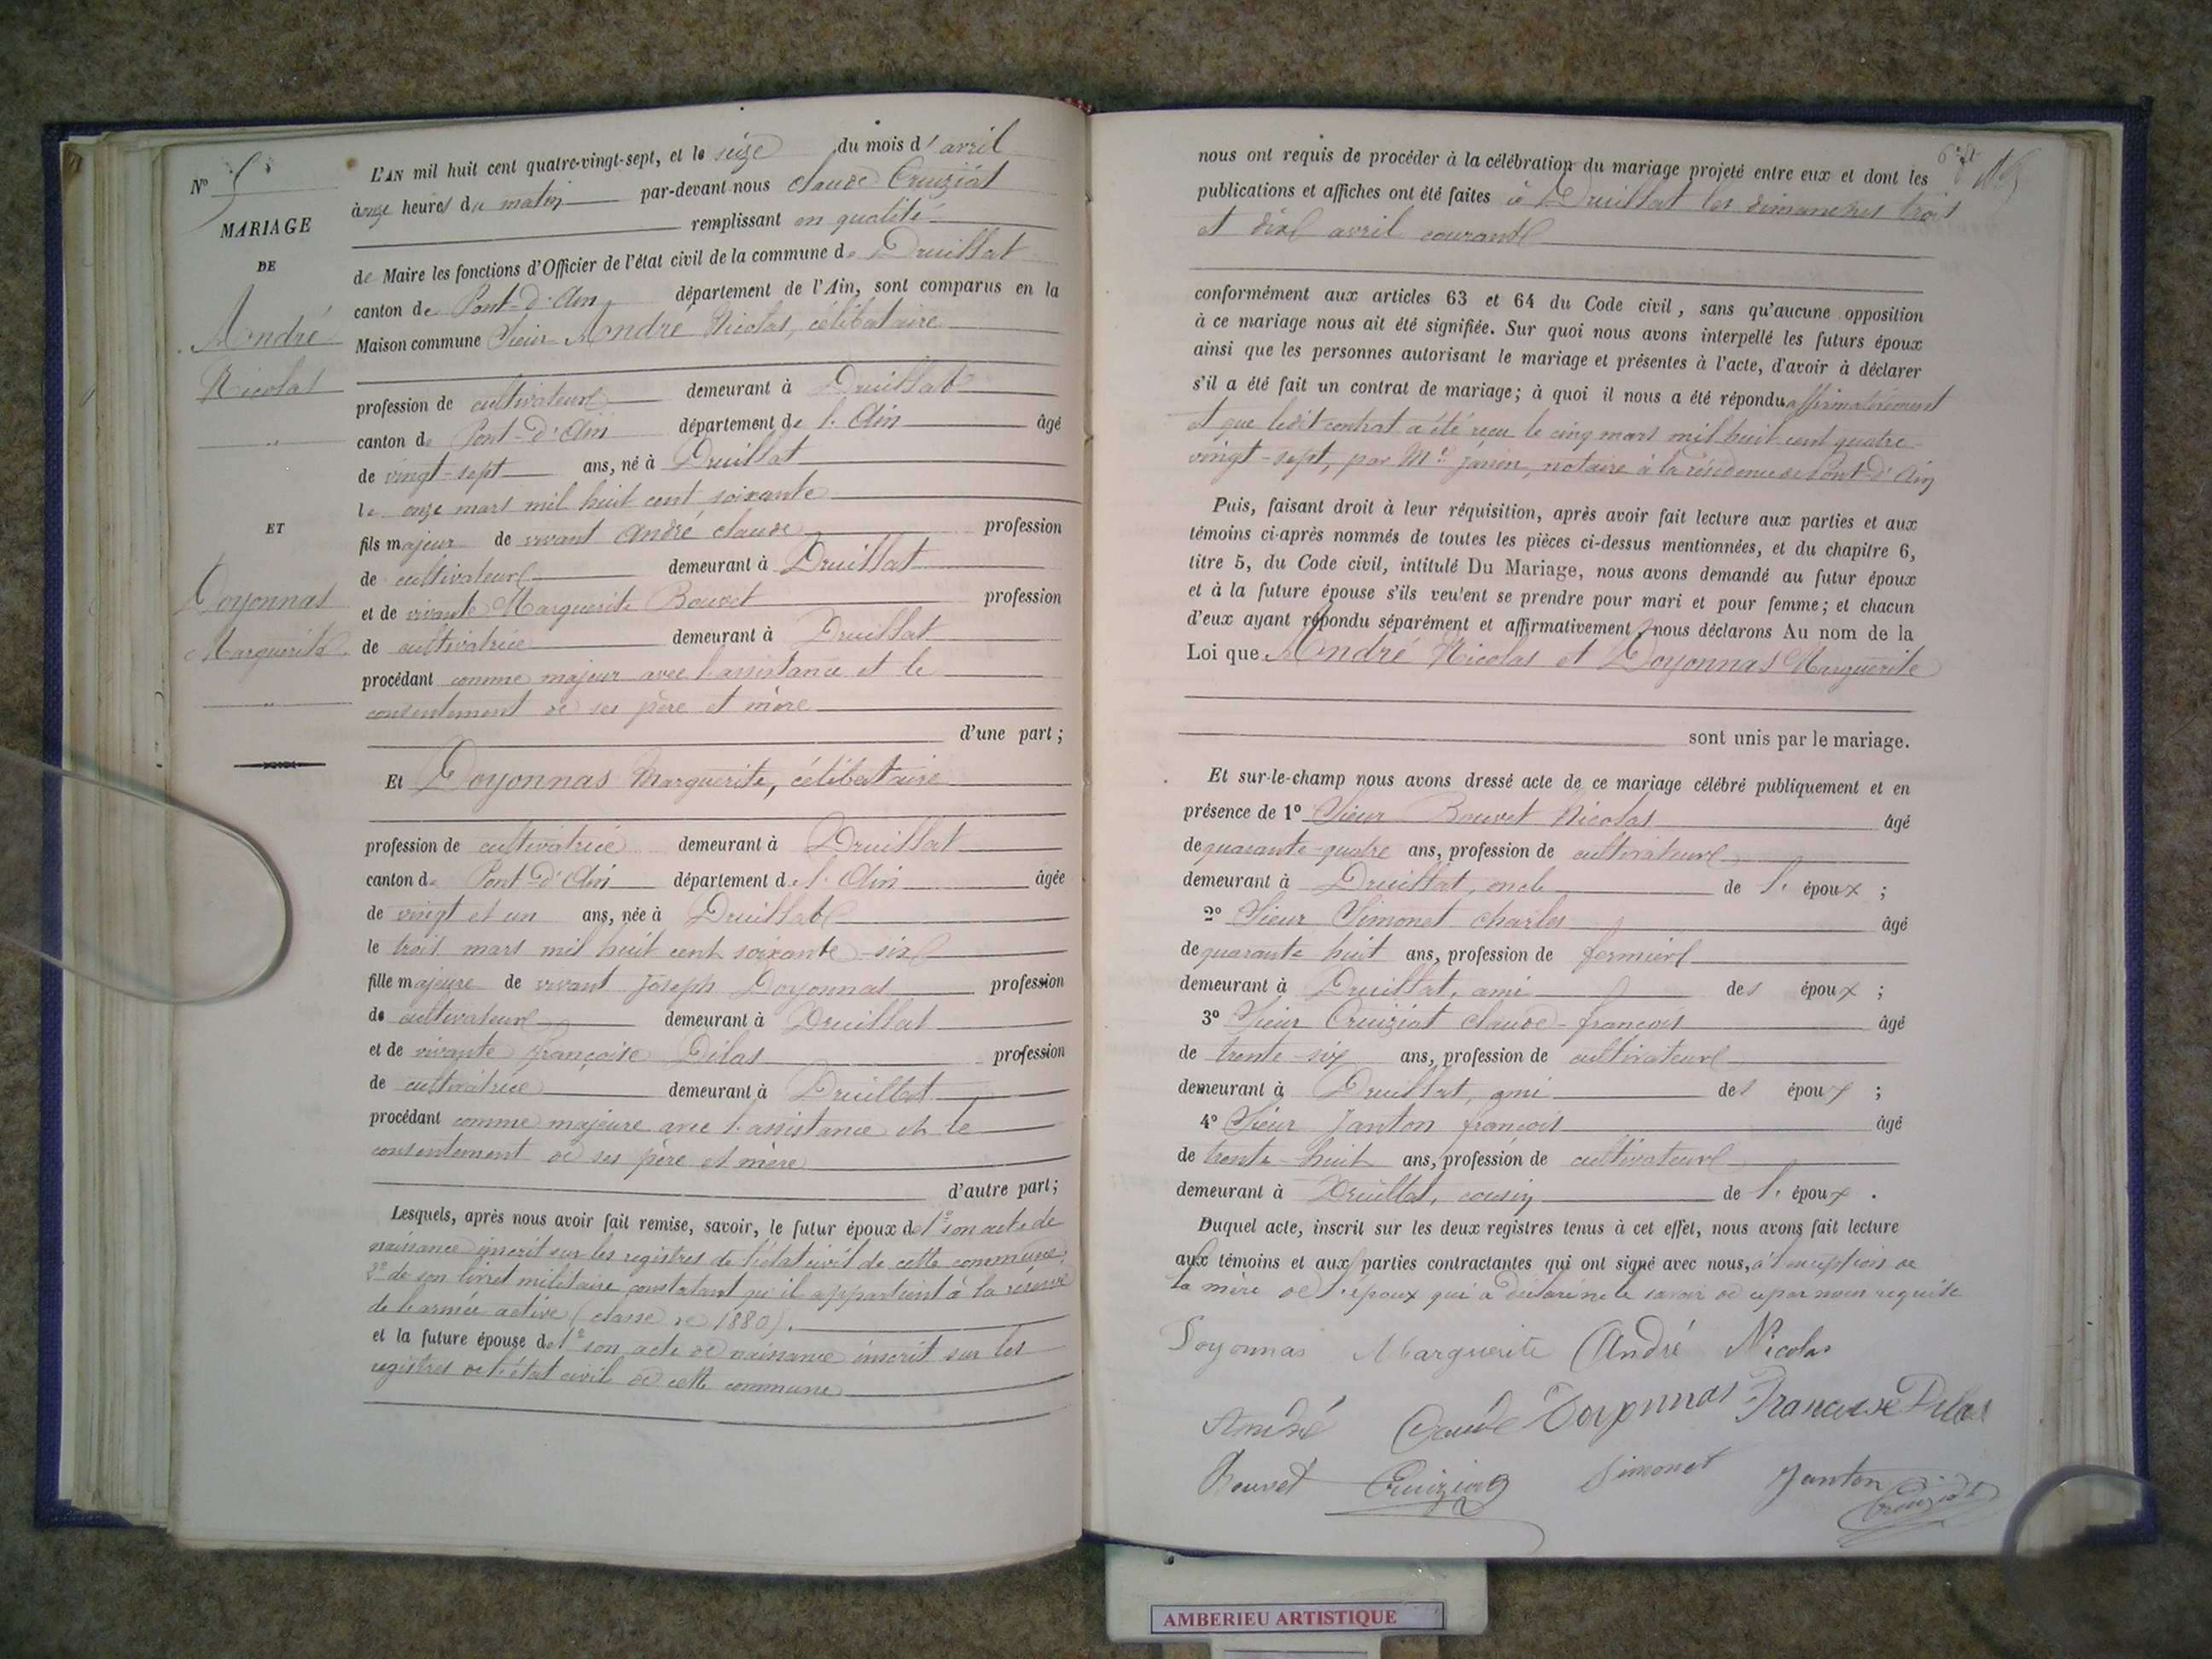 N° 5
MARIAGE
DE
André
Nicolas
ET
Doyonnas
Marguerite
L'AN mil huit cent quatre-vingt-sept, et le seize du mois d'avril
à onze heures du matin par-devant nous Claude Cruiziat
remplissant en qualité
de Maire les fonctions d'Officier de l'état civil de la commune de Druillat
canton de Pont-d'Ain département de l'Ain, sont comparus en la
Maison commune Sieur André Nicolas, célibataire
profession de cultivateur demeurant à Druillat
canton de Pont-d'Ain département de l'Ain âgé
de vingt-sept ans, né à Druillat
le onze mars mil huit cent soixante
fils majeur de vivant André Claude profession
de cultivateur demeurant à Druillat
et de vivante Marguerite Bouvet profession
de cultivatrice demeurant à Druillat
procédant comme majeur avec l'assistance et le
consentement de ses père et mère
d'une part;
Et Doyonnas Marguerite, célibataire
profession de cultivatrice demeurant à Druillat
canton de Pont-d'Ain département de l'Ain âgée
de vingt et un ans, née à Druillat
le trois mars mil huit cent soixante-six
fille majeure de vivant Joseph Doyonnas profession
de cultivateur demeurant à Druillat
et de vivante françoise Dilas profession
de cultivatrice demeurant à Druillat
procédant comme majeure avec l'assistance et le
consentement de ses père et mère
d'autre part;
Lesquels, après nous avoir fait remise, savoir, le futur époux de 1° son acte de
naissance inscrit sur les registres de l'état civil de cette commune,
2° de son livret militaire constatant qu'il appartient à la réserve
de l'armée active (classe de 1880).
et la future épouse de 1° son acte de naissance inscrit sur les
registres de l'état civil de cette commune
nous ont requis de procéder à la célébration du mariage projeté entre eux et dont les
publications et affiches ont été faites à Druillat les dimanches trois
et dix avril courant
conformément aux articles 63 et 64 du Code civil, sans qu'aucune opposition
à ce mariage nous ait été signifiée. Sur quoi nous avons interpellé les futurs époux
ainsi que les personnes autorisant le mariage et présentes à l'acte, d'avoir à déclarer
s'il a été fait un contrat de mariage; à quoi il nous a été répondu affirmativement
et que ledit contrat a été reçu le cinq mars mil huit cent quatre-
vingt-sept, par Me Janin, notaire à la résidence de Pont-d'Ain
Puis, faisant droit à leur réquisition, après avoir fait lecture aux parties et aux
témoins ci-après nommés de toutes les pièces ci-dessus mentionnées, et du chapitre 6,
titre 5, du Code civil, intitulé Du Mariage, nous avons demandé au futur époux
et à la future épouse s'ils veulent se prendre pour mari et pour femme; et chacun
d'eux ayant répondu séparément et affirmativement, nous déclarons Au nom de la
Loi que André Nicolas et Doyonnas Marguerite
sont unis par le mariage.
Et sur-le-champ nous avons dressé acte de ce mariage célébré publiquement et en
présence de 1° Sieur Bouvet Nicolas âgé
de quarante-quatre ans, profession de cultivateur
demeurant à Druillat, oncle de l'époux;
2° Sieur Simonet Charles âgé
de quarante huit ans, profession de fermier
demeurant à Druillat, ami des époux;
3° Sieur Cruiziat Claude-françois âgé
de trente-six ans, profession de cultivateur
demeurant à Druillat, ami des époux;
4° Sieur Janton françois âgé
de trente-huit ans, profession de cultivateur
demeurant à Druillat, cousin de l'époux.
Duquel acte, inscrit sur les deux registres tenus à cet effet, nous avons fait lecture
aux témoins et aux parties contractantes qui ont signé avec nous, à l'exception de
la mère de l'époux qui a déclaré ne le savoir de ce par nous requise
Doyonnas Marguerite André Nicolas
André Claude Doyonnas Francoise Dilas
Bouvet Cruiziat Simonet Janton
Cruiziat
AMBERIEU ARTISTIQUE